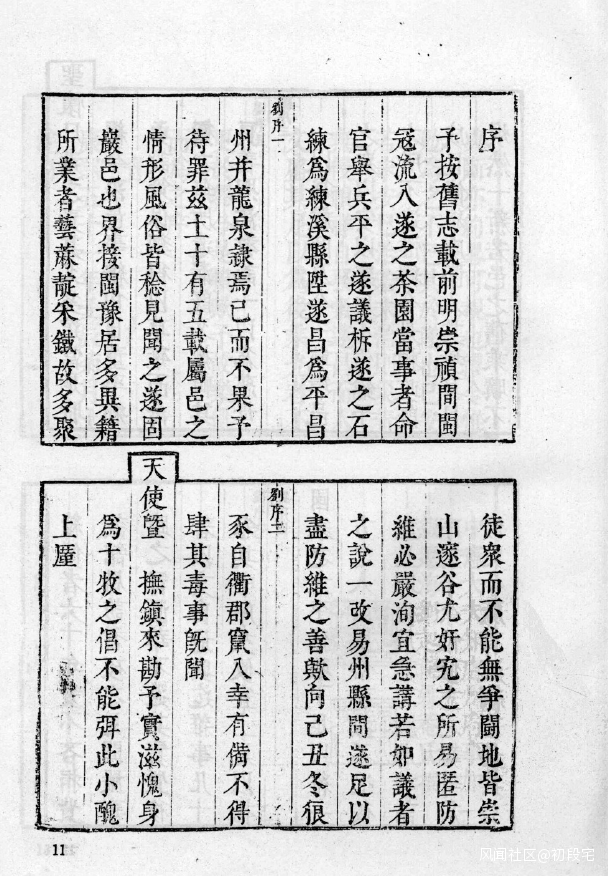 序
予按舊志載前明崇禎間閩
冦流入遂之茶園當事者命
官舉兵平之遂議析遂之石
練爲練溪縣陞遂昌爲平昌
劉序一
州并龍泉隷焉已而不果予
待罪茲土十有五載屬邑之
情形風俗皆稔見聞之遂固
巖邑也界接閩豫居多異籍
所業者藝蔴靛采鐵故多聚
徒衆而不能無爭鬪地皆崇
山邃谷尤奸宄之所易匿防
維必嚴洵宜急講若如議者
之說一改易州縣間遂足以
盡防維之善歟向己丑冬狠
劉序二
豕自衢郡竄入幸有備不得
肆其毒事旣聞
天使曁 撫鎮來勘予實滋愧身
爲十牧之倡不能弭此小醜
上厪
11
风闻社区@初段宅